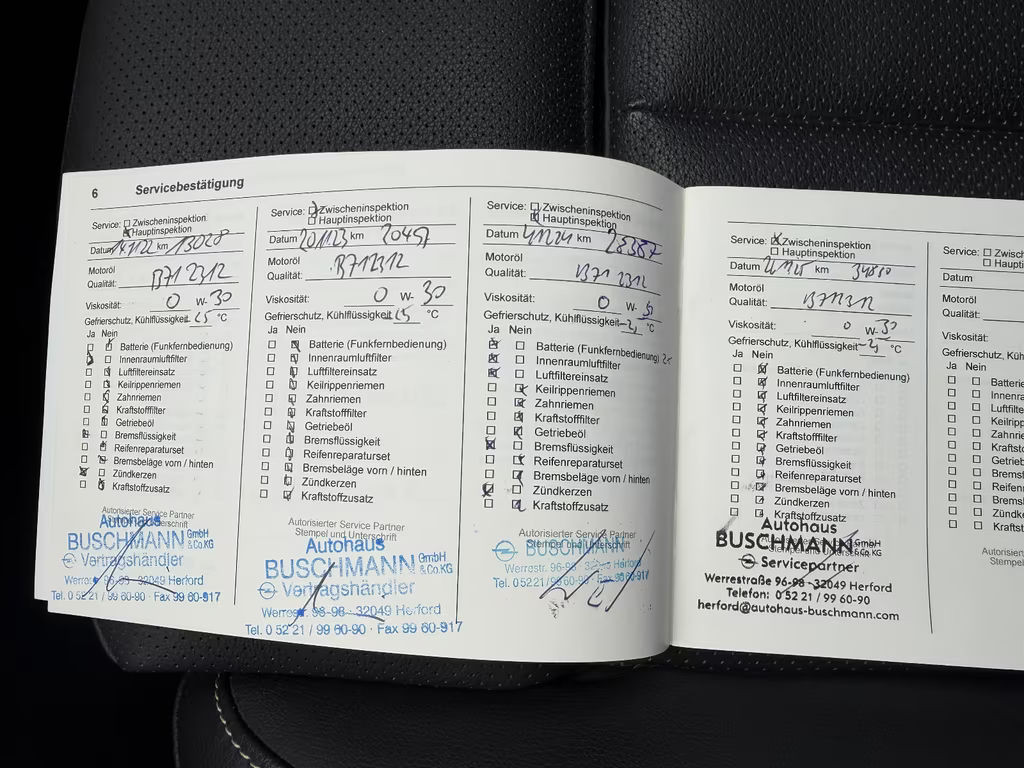 6 Servicebestätigung
Service: Zwischeninspektion
Hauptinspektion
Datum km 13028
Motoröl
Qualität: B71 2312
Viskosität: 0 W- 30
Gefrierschutz, Kühlflüssigkeit °C
Ja Nein
Batterie (Funkfernbedienung)
Innenraumluftfilter
Luftfiltereinsatz
Keilrippenriemen
Zahnriemen
Kraftstofffilter
Getriebeöl
Bremsflüssigkeit
Reifenreparaturset
Bremsbeläge vorn / hinten
Zündkerzen
Kraftstoffzusatz
Autorisierter Service Partner
Autohaus
BUSCHMANN GmbH & Co.KG
Vertragshändler
Werrestr. 96-98 · 32049 Herford
Tel. 0 52 21 / 99 60-90 · Fax 99 60-917
Service: Zwischeninspektion
Hauptinspektion
Datum km 20457
Motoröl
Qualität: B712312
Viskosität: 0 W- 30
Gefrierschutz, Kühlflüssigkeit °C
Ja Nein
Batterie (Funkfernbedienung)
Innenraumluftfilter
Luftfiltereinsatz
Keilrippenriemen
Zahnriemen
Kraftstofffilter
Getriebeöl
Bremsflüssigkeit
Reifenreparaturset
Bremsbeläge vorn / hinten
Zündkerzen
Kraftstoffzusatz
Autorisierter Service Partner
Stempel und Unterschrift
Autohaus
BUSCHMANN GmbH & Co.KG
Vertragshändler
Werrestr. 96-98 · 32049 Herford
Tel. 0 52 21 / 99 60-90 · Fax 99 60-917
Service: Zwischeninspektion
Hauptinspektion
Datum km 28387
Motoröl
Qualität: B71 2312
Viskosität: 0 W- 30
Gefrierschutz, Kühlflüssigkeit °C
Ja Nein
Batterie (Funkfernbedienung)
Innenraumluftfilter
Luftfiltereinsatz
Keilrippenriemen
Zahnriemen
Kraftstofffilter
Getriebeöl
Bremsflüssigkeit
Reifenreparaturset
Bremsbeläge vorn / hinten
Zündkerzen
Kraftstoffzusatz
Autorisierter Service Partner
Stempel und Unterschrift
BUSCHMANN
Werrestr. 96-98 · 32049 Herford
Tel. 0 52 21 / 99 60-90 · Fax 99 60-917
Service: Zwischeninspektion
Hauptinspektion
Datum km
Motoröl
Qualität:
Viskosität: 0 W- 30
Gefrierschutz, Kühlflüssigkeit °C
Ja Nein
Batterie (Funkfernbedienung)
Innenraumluftfilter
Luftfiltereinsatz
Keilrippenriemen
Zahnriemen
Kraftstofffilter
Getriebeöl
Bremsflüssigkeit
Reifenreparaturset
Bremsbeläge vorn / hinten
Zündkerzen
Kraftstoffzusatz
Autohaus
BUSCHMANN GmbH & Co.KG
Servicepartner
Werrestraße 96-98 · 32049 Herford
Telefon: 0 52 21 / 99 60-90
herford@autohaus-buschmann.com
Service: Zwisc
Haupt
Datum
Motoröl
Qualität:
Viskosität:
Gefrierschutz, Kühlf
Ja Nein
Batterie
Innenra
Luftfilte
Keilripp
Zahnrie
Kraftsto
Getrieb
Bremsfl
Reifenr
Bremsb
Zündke
Kraftsto
Autorisier
Stempe